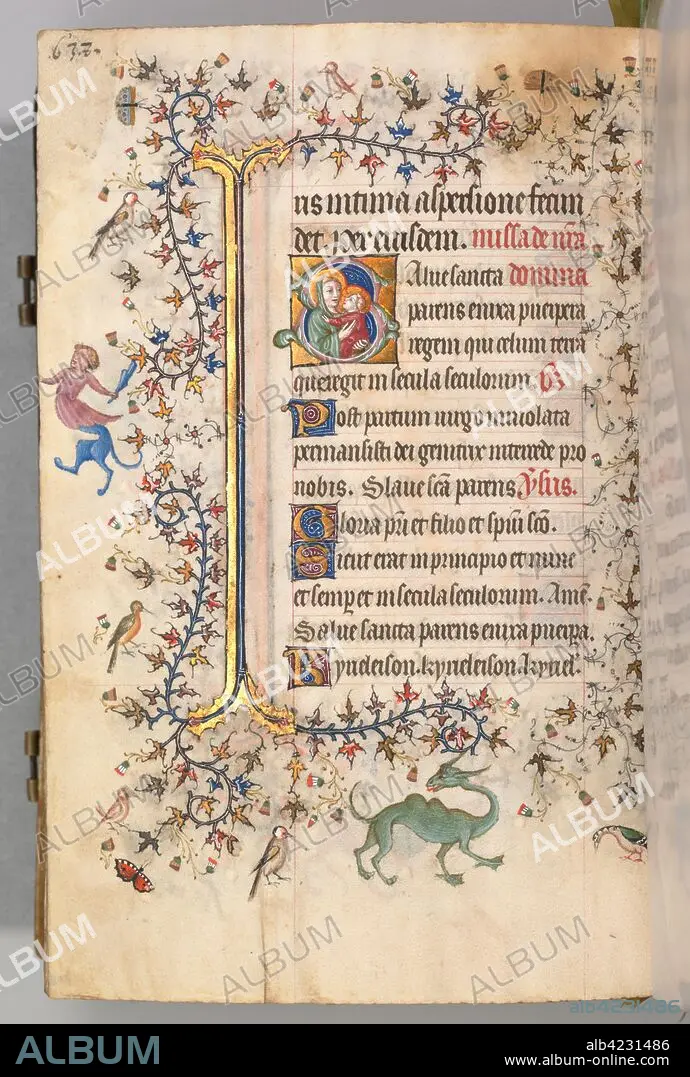 637.
ris intima aspersione fecun
det. Per eiusdem. missa de nra
Salue sancta domina
parens enixa puerpera
regem qui celum terra
que regit in secula seculorum. V̷
Post partum uirgo inuiolata
permansisti dei genitrix intercede pro
nobis. Salue scā parens
Gloria pri et filio et spui sco.
Sicut erat in principio et nunc
et semp et in secula seculorum. Ame.
Salue sancta parens enixa puerpa.
kyrieleison. kyrieleison. kyriel.
ALBUM
alb4231486
alb4231486
www.album-online.com